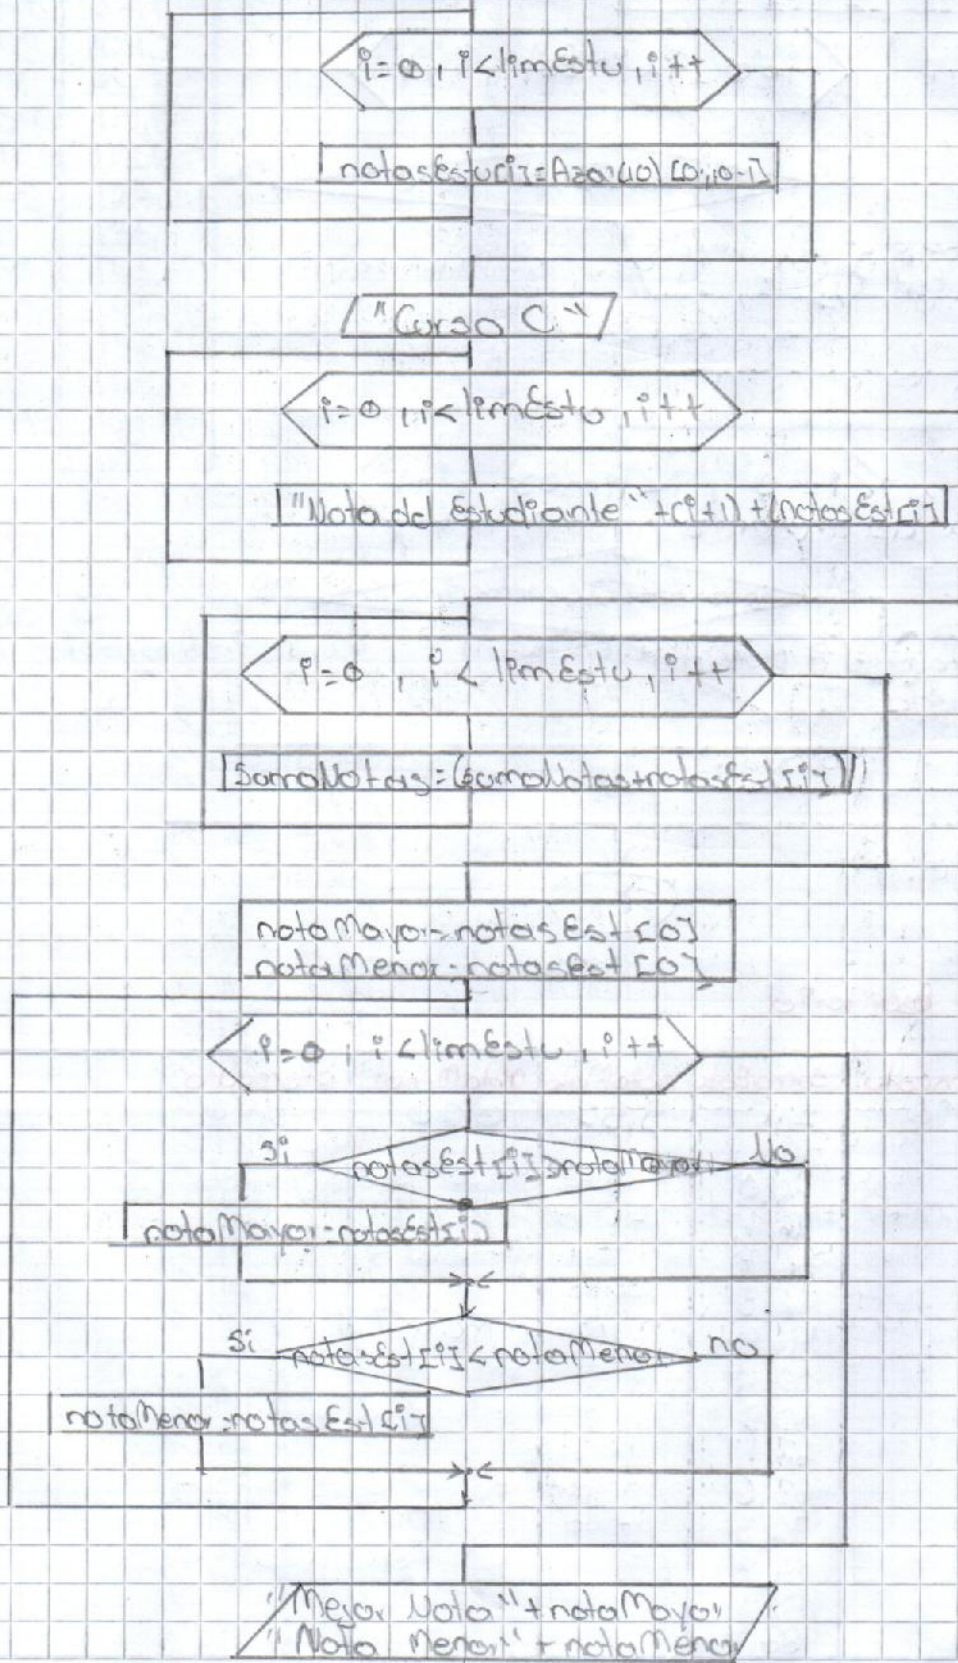 i=0, i<limEstu, i++
notasEstu[i]=Azar(10) [0..10-1]
"Curso C"
i=0, i<limEstu, i++
"Nota del Estudiante"+(i+1)+(notasEst[i]
i=0, i<limEstu, i++
SumaNotas=(sumaNotas+notasEst[i])
notaMayor=notasEst[0]
notaMenor=notasEst[0]
i=0, i<limEstu, i++
Si notasEst[i]>notaMayor No
notaMayor=notasEst[i]
Si notasEst[i]<notaMenor no
notaMenor=notasEst[i]
"Mejor Nota"+notaMayor
"Nota Menor"+notaMenor